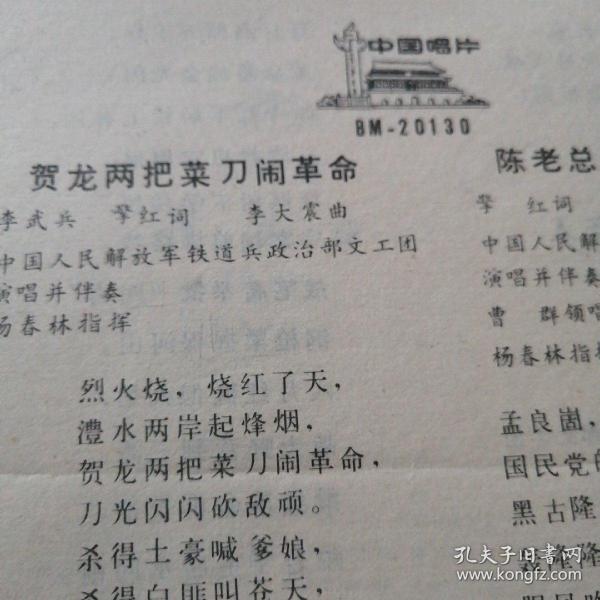 中国唱片
BM-20130
贺龙两把菜刀闹革命
李武兵 擎红词 李大震曲
中国人民解放军铁道兵政治部文工团
演唱并伴奏
杨春林指挥
烈火烧，烧红了天，
澧水两岸起烽烟，
贺龙两把菜刀闹革命，
刀光闪闪砍敌顽。
杀得土豪喊爹娘，
杀得白匪叫苍天，
陈老总
擎 红词
中国人民解
演唱并伴奏
曹 群领唱
杨春林指挥
孟良崮，
国民党的
黑古隆
孔夫子旧书网
www.kongfz.com